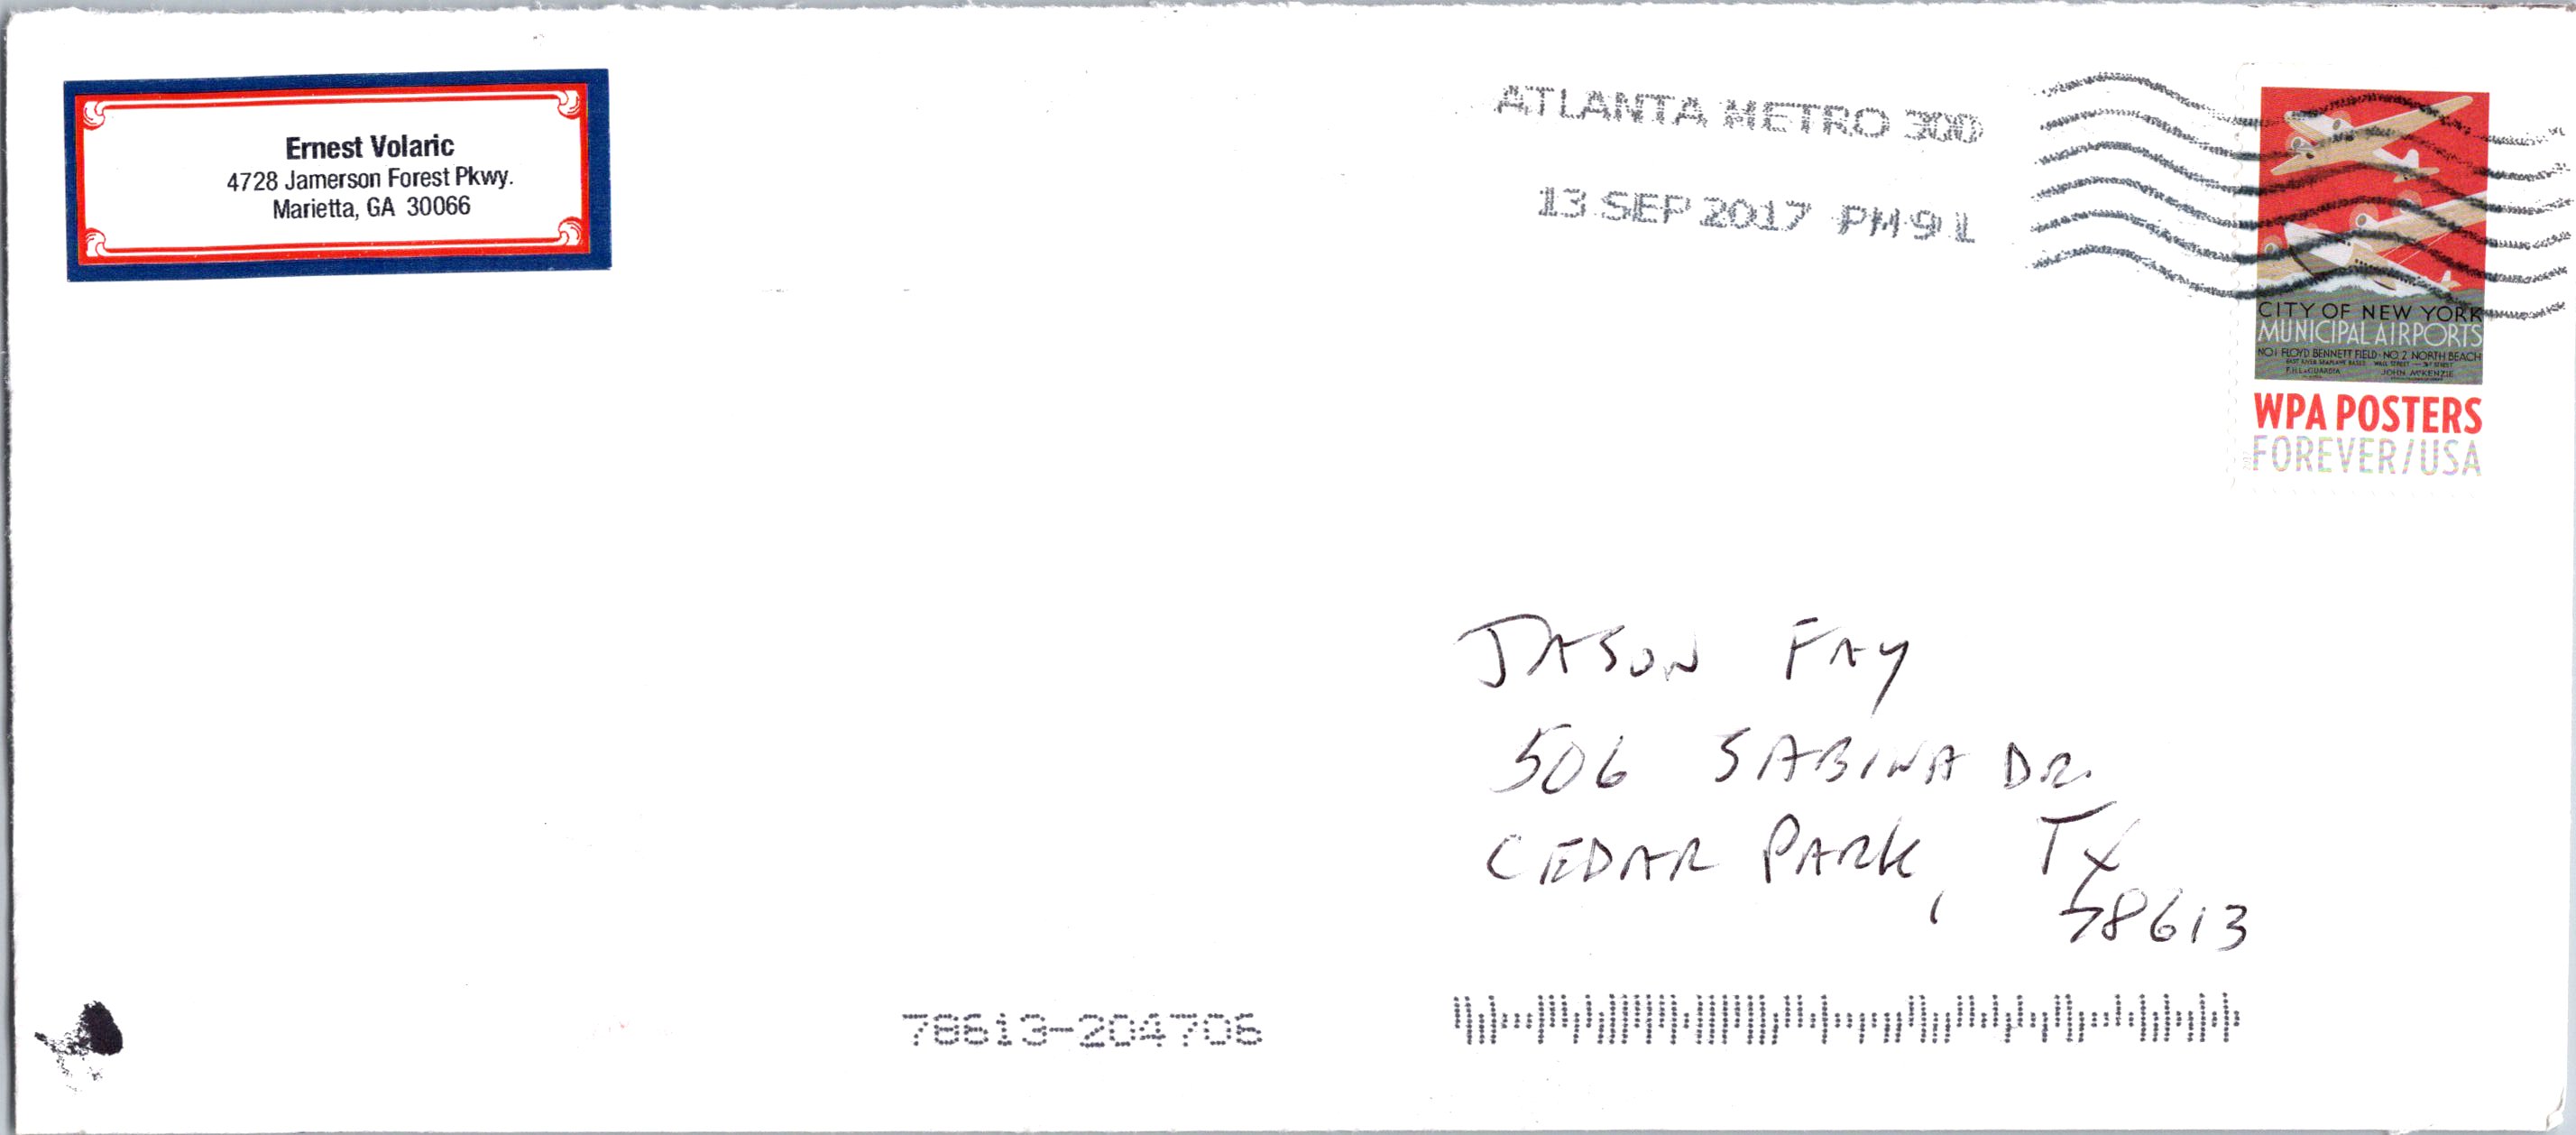 Ernest Volaric
4728 Jamerson Forest Pkwy.
Marietta, GA 30066
ATLANTA METRO 300
13 SEP 2017 PM 9 L
CITY OF NEW YORK
MUNICIPAL AIRPORTS
NO 1 FLOYD BENNETT FIELD - NO 2 NORTH BEACH
EAST RIVER SEAPLANE BASES WALL STREET
F.H. LAGUARDIA JOHN McKENZIE
WPA POSTERS
FOREVER/USA
JASON FAY
506 SABINA DR.
CEDAR PARK, TX
78613
78613-204706